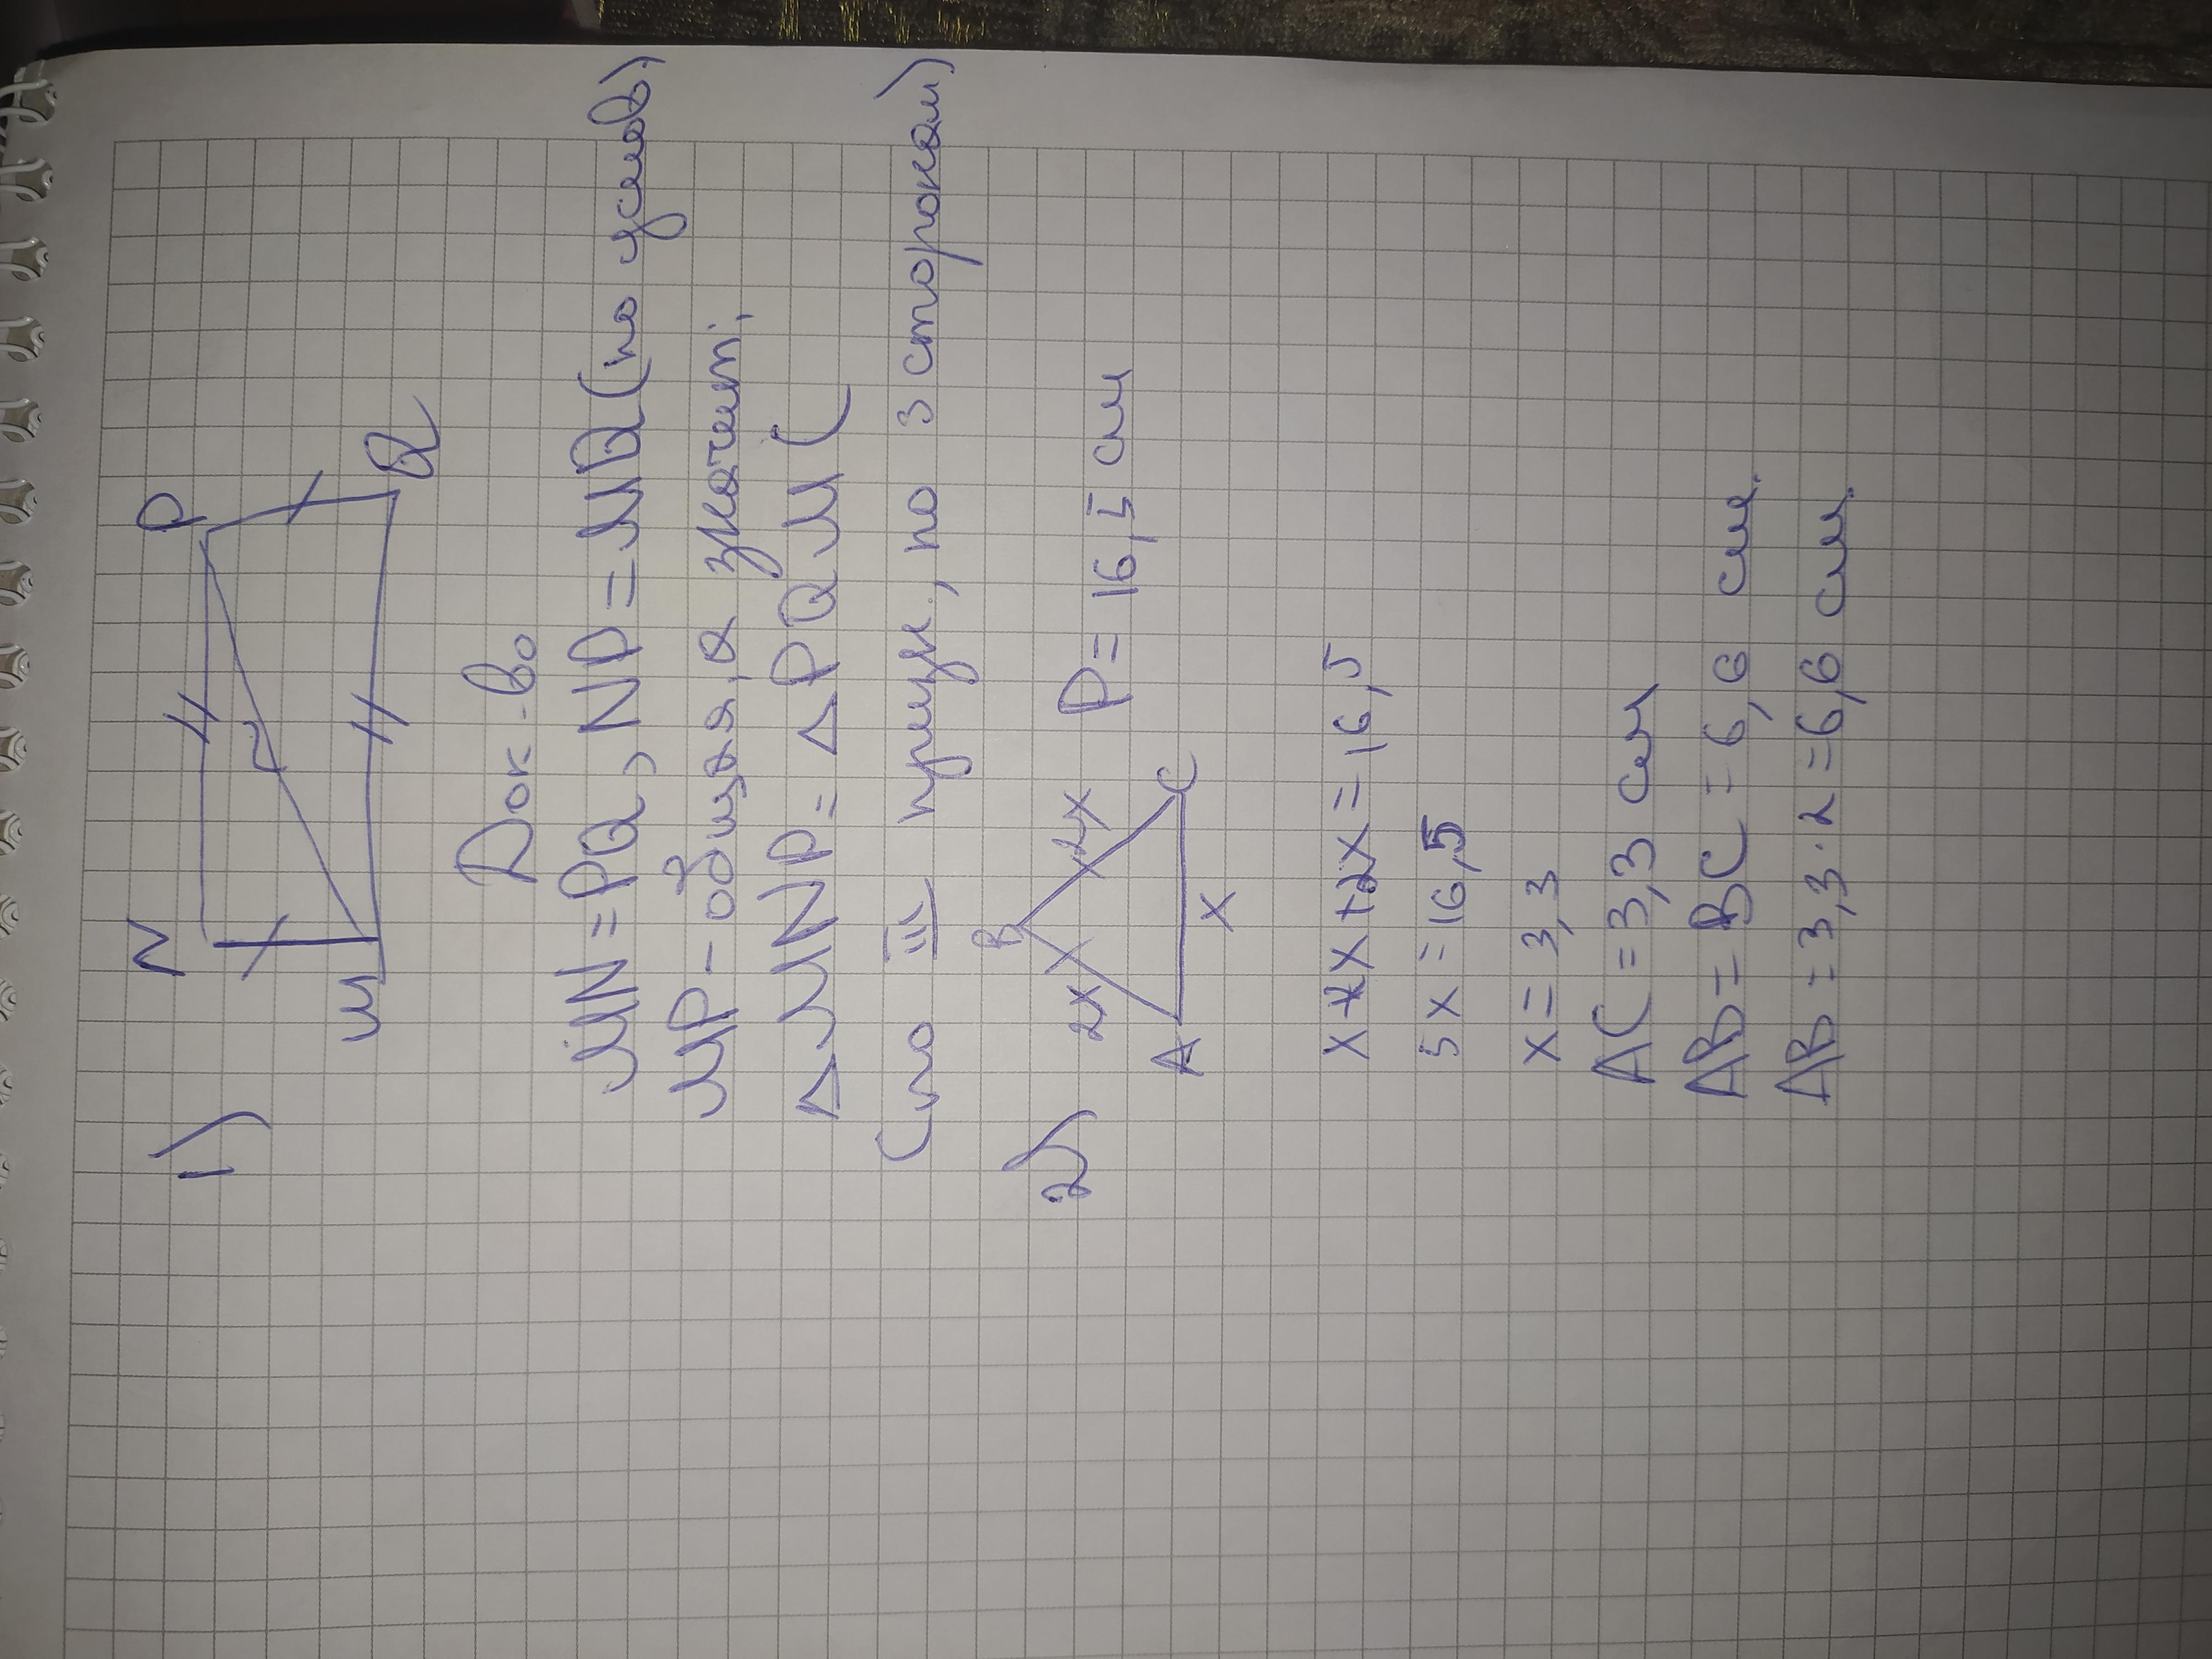 1)
N P
M Q
Док-во
MN = PQ, NP = MQ (по услов)
MP - общая, а значит,
△MNP = △PQM (
(по III призн., по 3 сторонам)
2)
B
2x 2x P = 16,5 см
A C
x
x + 2x + 2x = 16,5
5x = 16,5
x = 3,3
AC = 3,3 см
AB = BC = 6,6 см.
AB = 3,3 · 2 = 6,6 см.